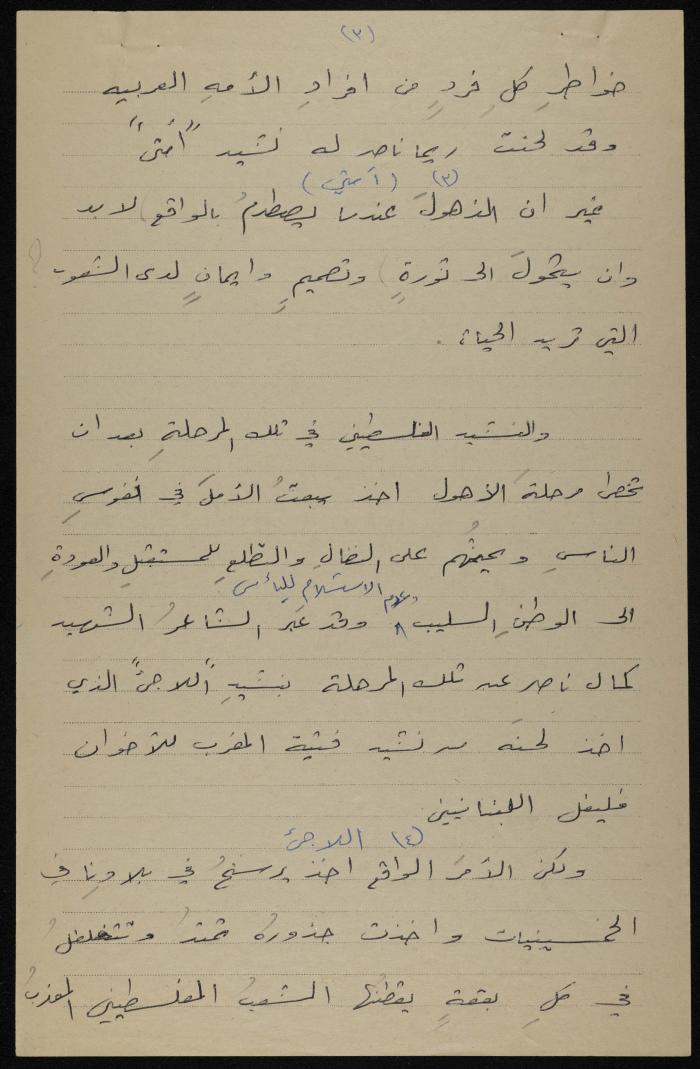 (٣)
خواطرِ كلِ فردٍ من افرادِ الأمهِ العربيه
وقد لحنت ريما ناصر له نشيد "أمتي"
(٣) (أمتي)
غير ان الذهولَ عندما يصطدمُ بالواقع) لا بد
وان يتحولَ الى ثورةٍ) وتصميمٍ وايمانٍ لدى الشعوب
التي تريد الحياة .
والنشيد الفلسطيني في تلك المرحلةِ بعد ان
تخطى مرحلة الذهول اخذ يبعثُ الأملَ في نفوسِ
الناسِ ويحثُهم على النضالِ والتطلعِ للمستقبلِ والعودةِ
وعدم الاستسلامِ لليأس
الى الوطنِ السليب ٨ وقد عبّر الشاعرُ الشهيد
كمال ناصر عن تلك المرحلة بنشيدِ "اللاجئ" الذي
اخذ لحنَه من نشيد فتية المغرب للأخوان
فليفل اللبنانيين
(٤) اللاجئ
ولكن الأمرَ الواقع اخذ يرسخُ في بلادِنا في
الخمسينيات واخذت جذورهُ تمتدُ وتتغلغلُ
في كلِ بقعةٍ يقطنُها الشعبُ الفلسطيني المعذبُ